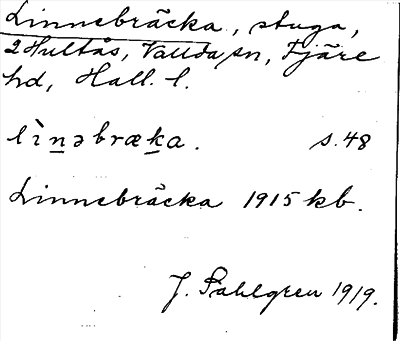 Linnebräcka, stuga,
2 Hultås, Vallda sn, Fjäre
hd, Hall. l.
lìnəbræka. s. 48
Linnebräcka 1915 kb.
J. Sahlgren 1919.